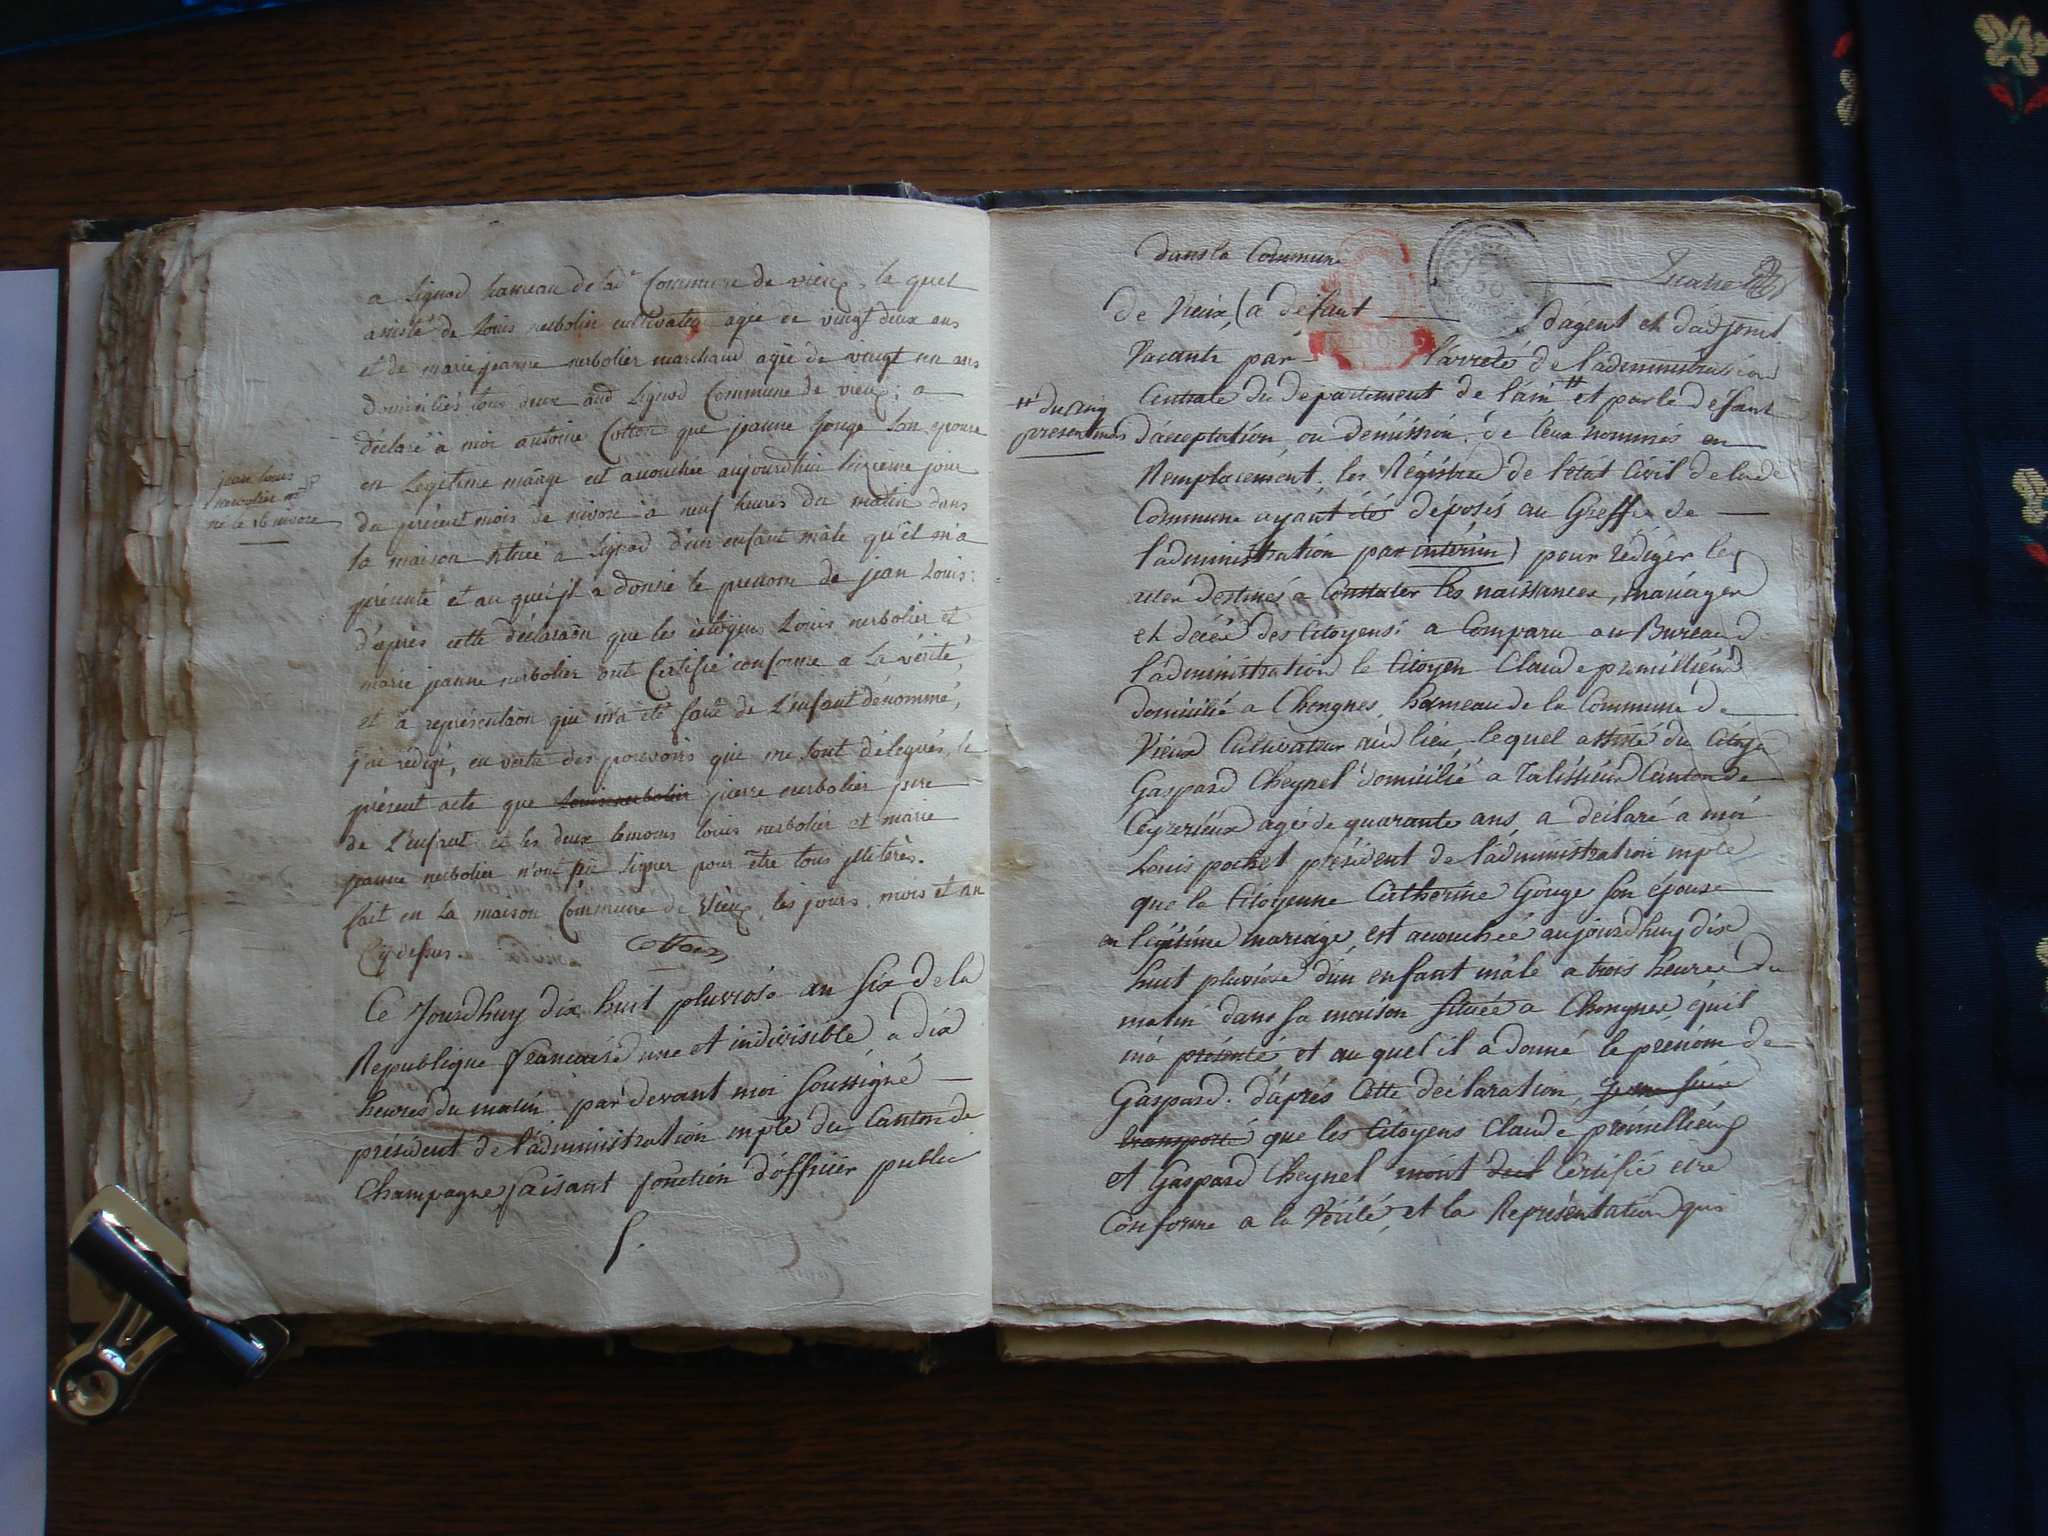 a Lignod hameau de lad.e Commune de vieux, le quel
assisté de Louis nerbolier cultivateur agée de vingt deux ans
et de marie jeanne nerbolier marchand agée de vingt un ans
domiciliés tous deux aud Lignod Commune de vieux; a
déclaré à moi antoine Cotton que jeanne Gouge son epouse
en Legitime mâage est acouchée aujourdhui seizieme jour
du présent mois de nivose à neuf heures du matin dans
la maison située a Lignod d'un enfant mâle qu'il m'a
présenté et au quel jl a donné le prenom de jean Louis:
d'après cette déclaraôn que les citoyens Louis nerbolier et
marie jeanne nerbolier ont Certifié conforme a La vérité,
et à représentaôn qui m'a été faite de L'enfant dénommé,
j'ai rédigé, en vertu des pouvoirs qui me sont délégués, le
présent acte que Louis nerbolier pierre nerbolier pere
de L'enfant et les deux temoins louis nerbolier et marie
jeanne nerbolier n'ont pu signer pour être tous jlletérés.
fait en La maison Commune de Vieux, les jours, mois et an
Cy dessus.
Cotton
jean Louis
nerbolier
né le 16 nivose
Ce Jourdhuy dix huit pluviose an six de la
Republique francaise une et indivisible a dix
heures du matin par devant moi soussigné
président de l'administration mple du Canton de
Champagne faisant fonction d'officier public
dans la Commune
de Vieux, (a défaut d'agent et d'adjoint
Vacante par l'arreté de l'administration
Centrale du departement de l'ain # et par le défaut
# du cinq
present mois
d'acceptation ou demission de Ceux nommés en
Remplacément, les Régistres de l'état Civil de lade
Commune ayant étés déposés au Greffe de
l'administration par intérim) pour rédiger les
actes destinés a Constater les naissances, mariages
et décès des Citoyens; a Comparu au Bureau d
l'administration le Citoyen Claude premillieu
domicilié a Chongnes, hameau de la Commune de
Vieux Cultivateur aud lieu, lequel assisté du Citoyen
Gaspard Cheynel domicilié a Talissieu Canton de
Ceyzerieux agé de quarante ans a déclaré a moi
Louis pochet président de l'administration mple
que la Citoyenne Catherine Gouge son épouse
en légitime mariage, est acouchée aujourdhuy dix
huit pluviose d'un enfant mâle a trois heures du
matin dans sa maison située a Chongnes qu'il
m'a présenté et au quel il a donné le prénom de
Gaspard. d'aprés Cette déclaration, je me suis
transporté que les Citoyens Claude prémillieu
et Gaspard Cheynel m'ont decl Certifié etre
Conforme a la Vérité, et la Représentation qui